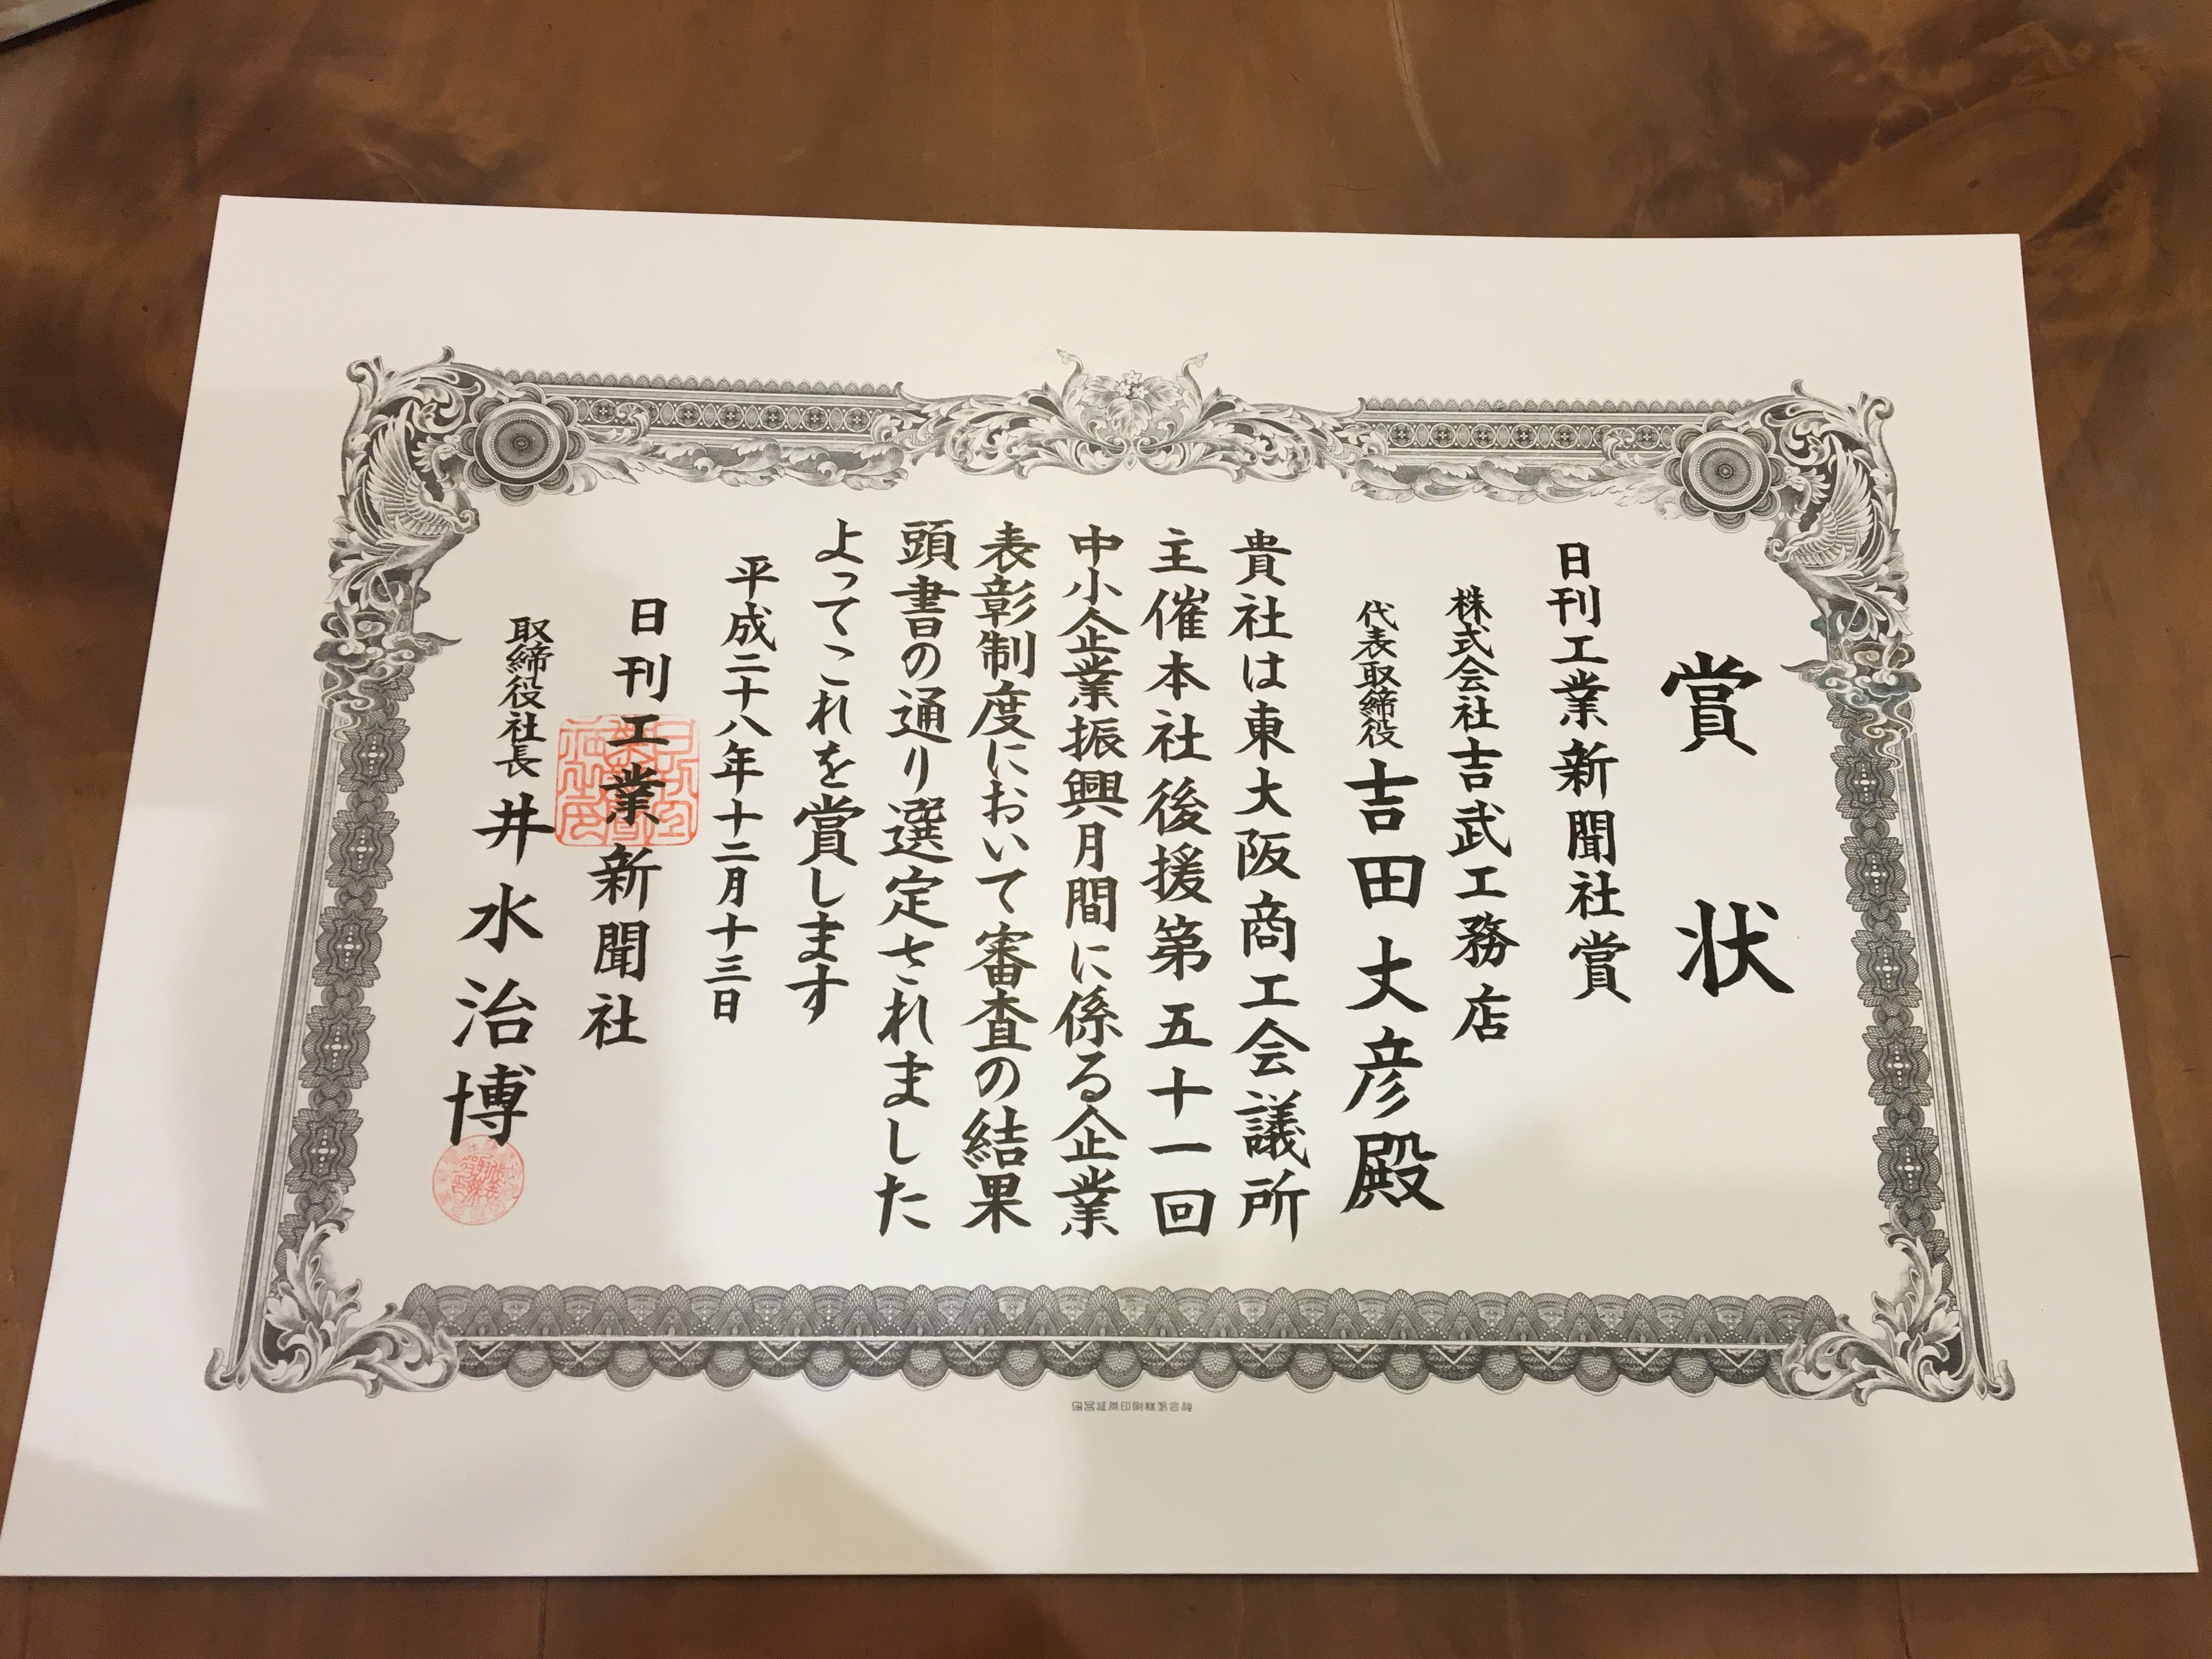 賞状
日刊工業新聞社賞
株式会社吉武工務店
代表取締役 吉田丈彦殿
貴社は東大阪商工会議所
主催本社後援第五十一回
中小企業振興月間に係る企業
表彰制度において審査の結果
頭書の通り選定されました
よってこれを賞します
平成二十八年十二月十三日
日刊工業新聞社
取締役社長 井水治博